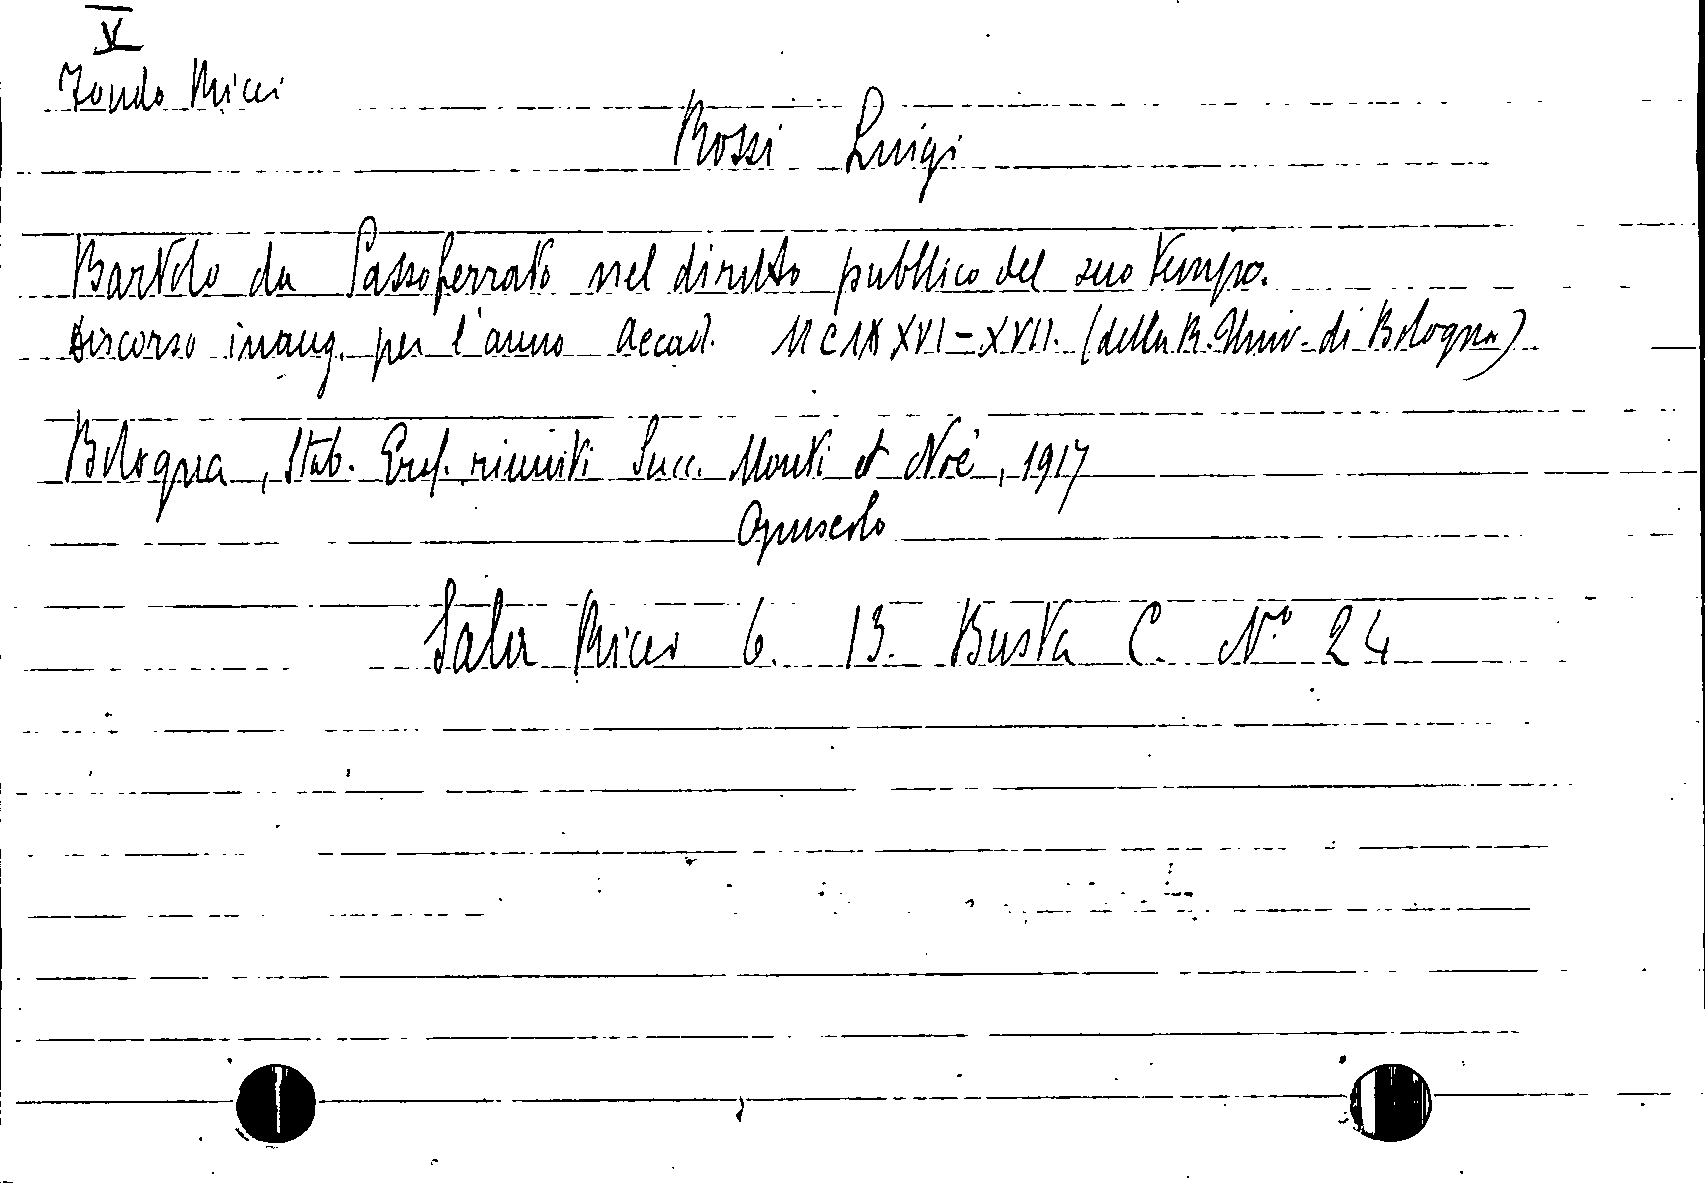 V
Fondo Ricci
Rossi Luigi
Bartolo da Sassoferrato nel diritto pubblico del suo tempo.
Discorso inaug. per l'anno accad. MCMXVI-XVII. (della R. Univ. di Bologna)
Bologna, Stab. Emil. riuniti Succ. Monti et Noè, 1917
Opuscolo
Sala Ricci 6. 13. Busta C. N.° 24